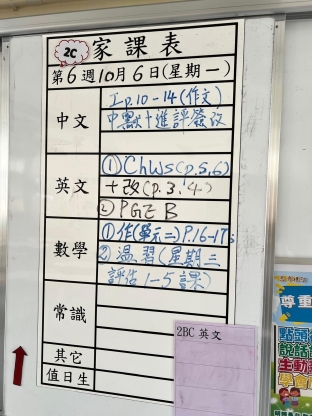 2C 家課表
第6週10月6日(星期一)
中文
I p.10-14(作文)
中默十進評簽改
英文
①Ch WS(p.5,6)
+改(p.3,4)
②PGE B
數學
①作(單元二)P.16-17
②溫習(星期三
評估1-5課)
常識
其它
值日生
2BC 英文
尊重
點頭
說話
主動
學會